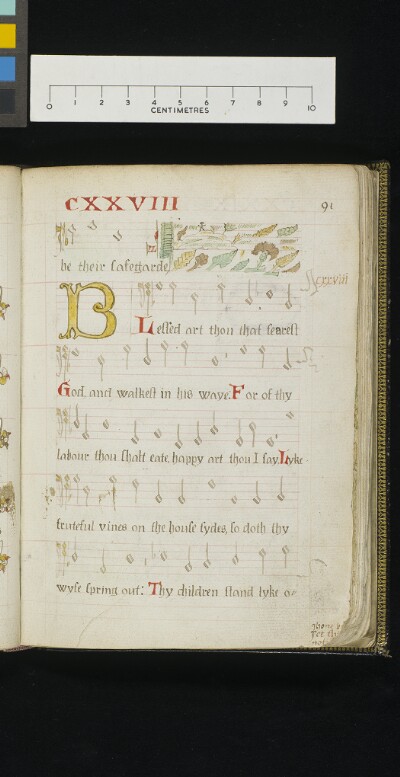 0 1 2 3 4 5 6 7 8 9 10
CENTIMETRES
CXXVIII
91
be their safegarde,
cxxviii
Blessed art thou that fearest
God, and walkest in his waye. For of thy
labour thou shalt eate, happy art thou I say. Lyke
fruteful vines on the house sydes, so doth thy
wyfe spring out: Thy children stand lyke o